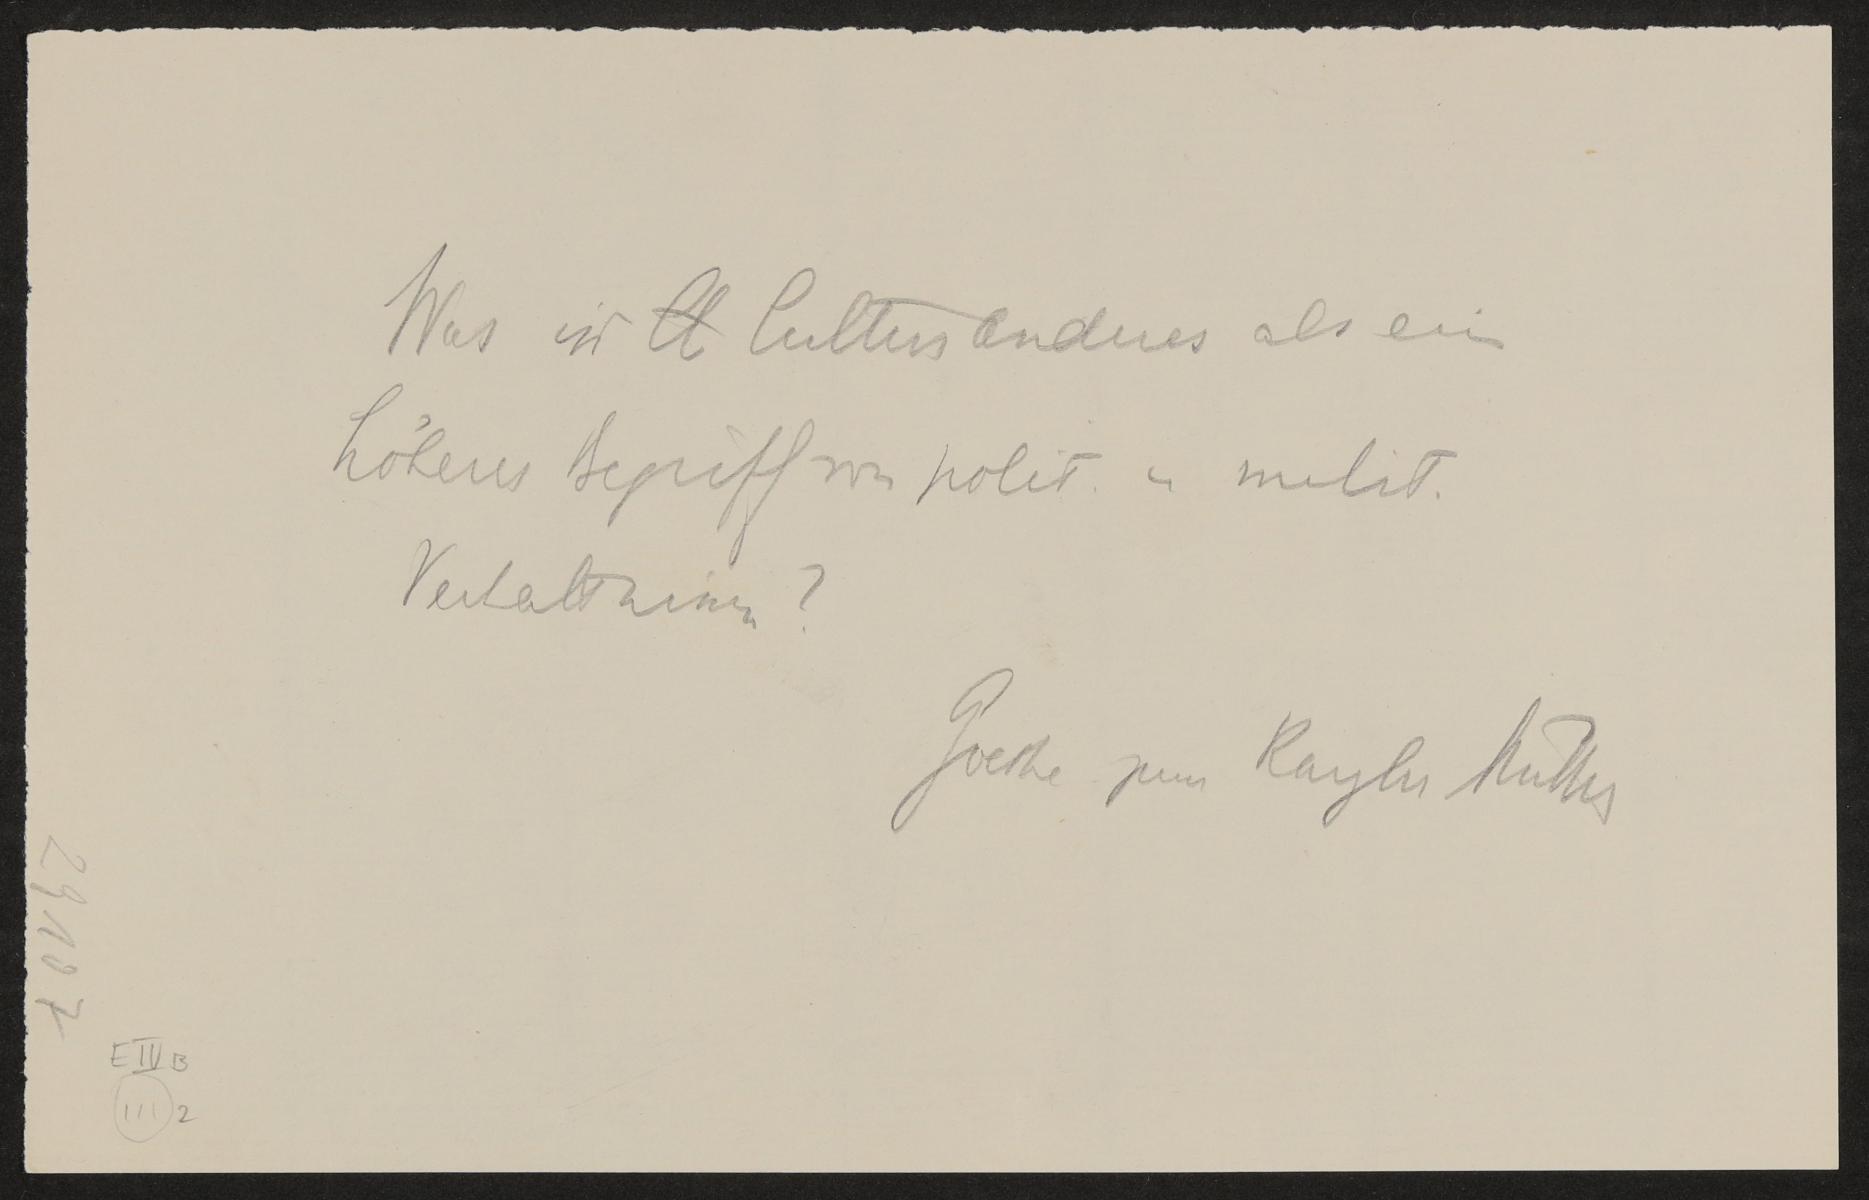 Was ist Cultur anderes als ein
höherer Begriff von polit. u milit.
Verhältnissen?
Goethe zum Kanzler Müller
29107
E IV B
III 2